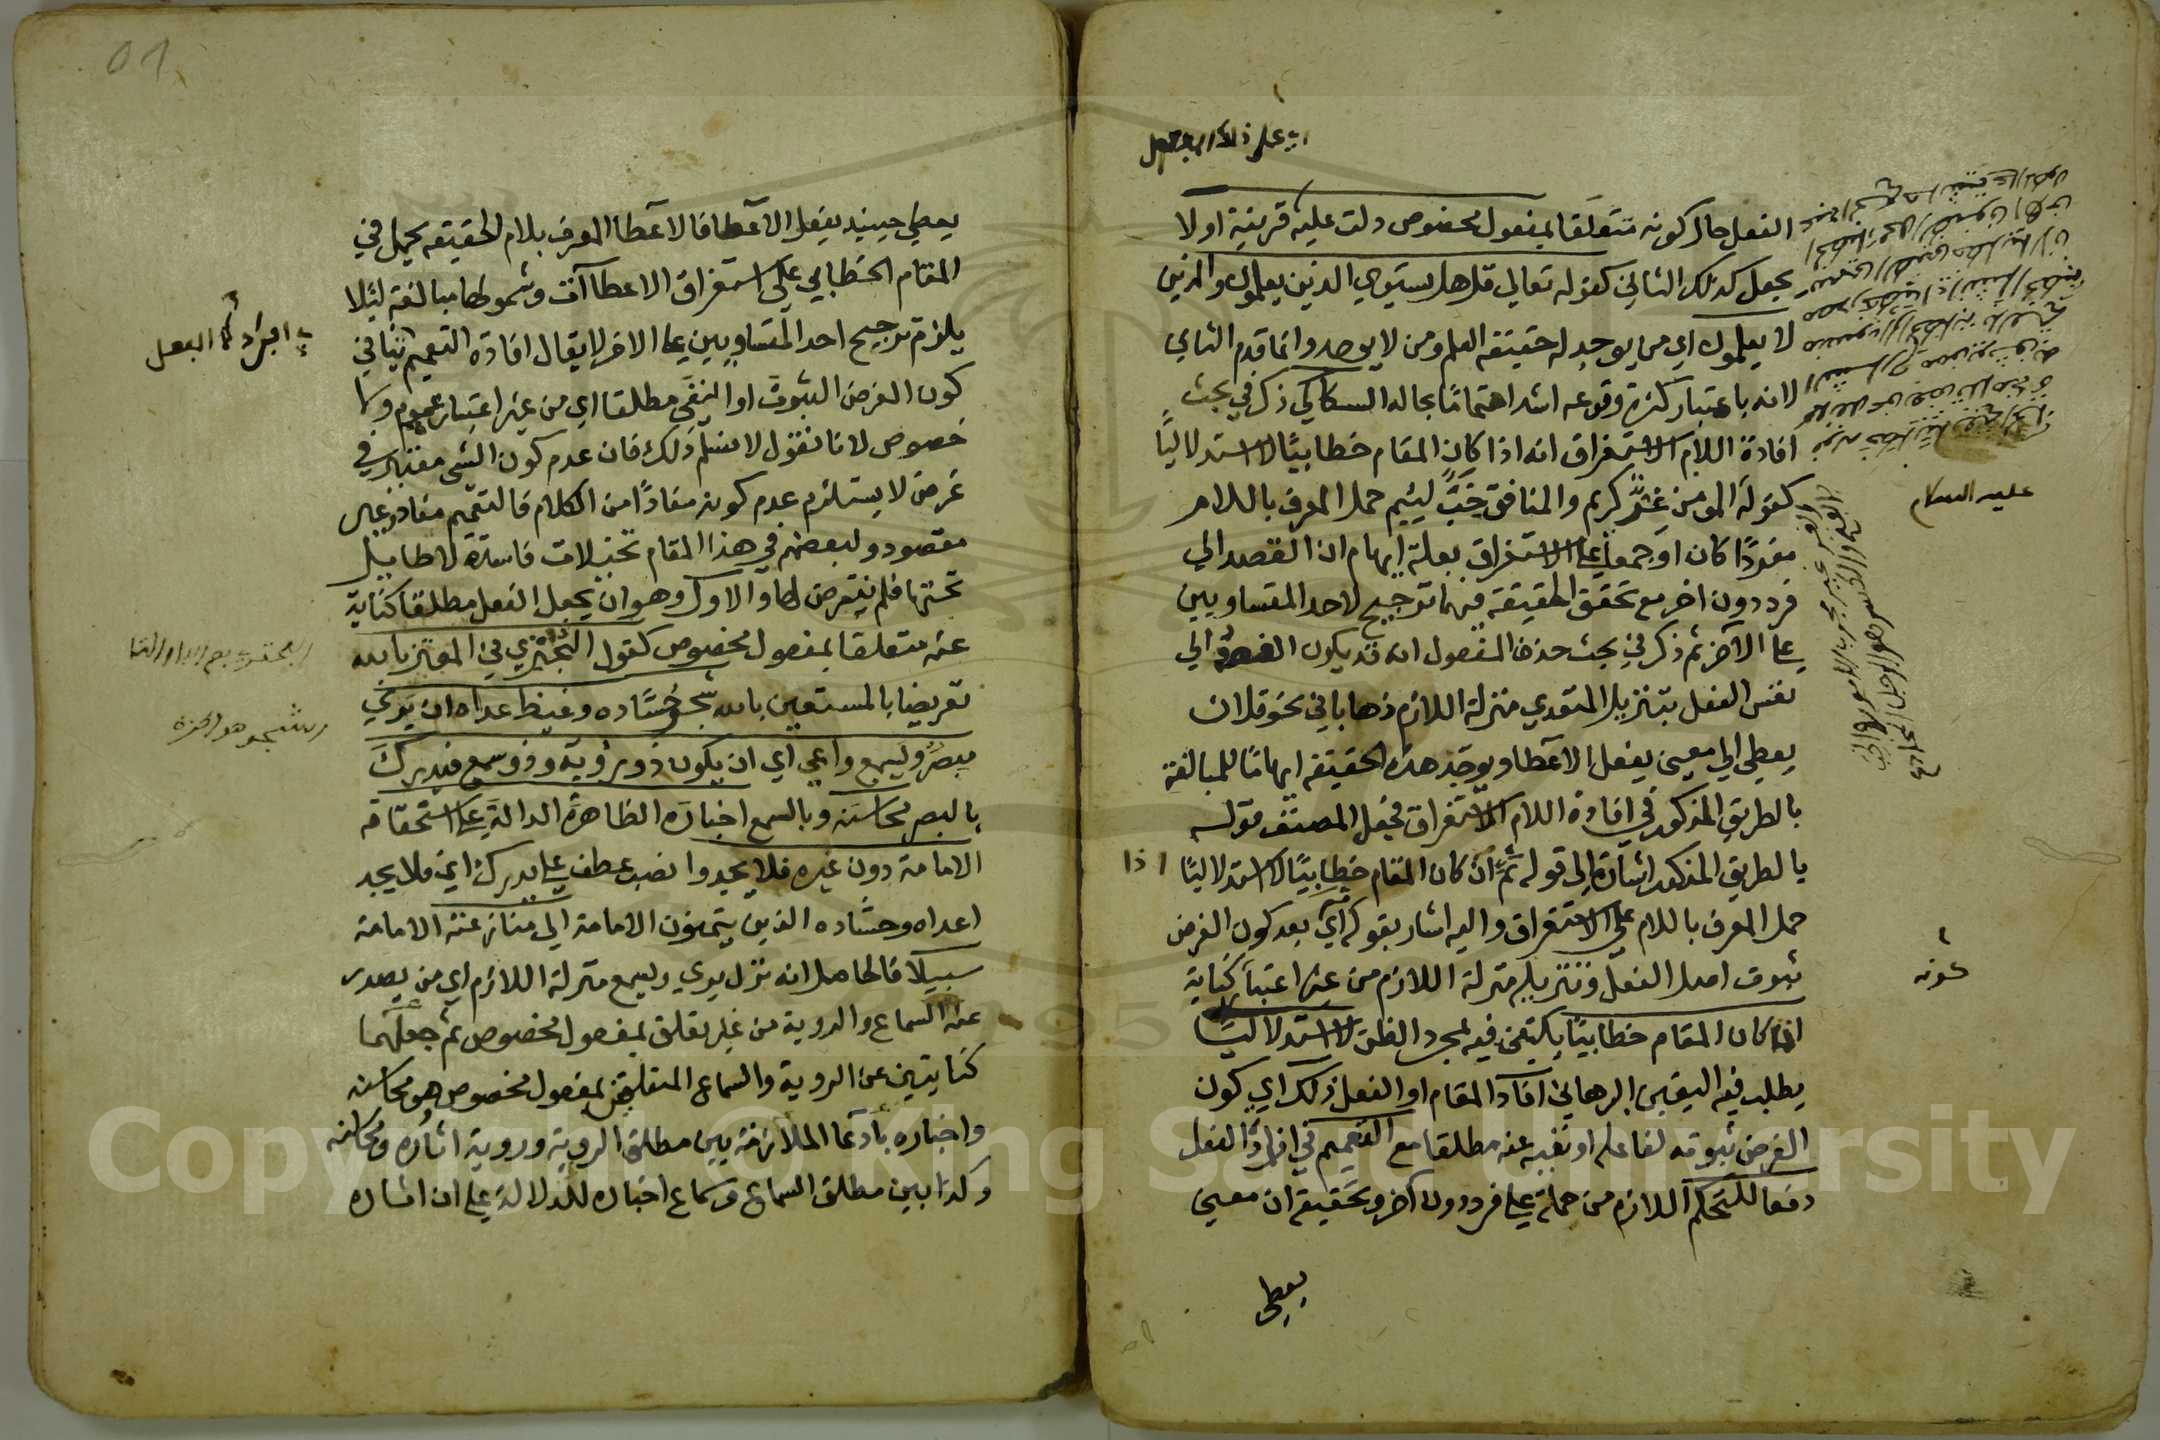 الفعل حال كونه متعلقا بمفعول مخصوص دلت عليه قرينة او لا
يجعل كذلك الثاني كقوله تعالي قل هل يستوي الذين يعلمون والذين
لا يعلمون اي من يوجد له حقيقة العلم ومن لا يوجد وانما قدم الثاني
لانه باعتبار كثرة وقوعه اشد اهتماما بحاله السكاكي ذكر في بحث
افادة اللام الاستغراق انه اذا كان المقام خطابيًا لا استدلاليًا
كقوله المومن غر كريم والمنافق خب لئيم حمل المعرف باللام
مفردًا كان او جمعا علي الاستغراق بعلة ايهام ان القصد الي
فرد دون اخر مع تحقق الحقيقة فيهما ترجيح لاحد المتساويين
علي الآخر ثم ذكر في بحث حذف المفعول انه قد يكون القصد الي
نفس الفعل بتنزيل المتعدي منزلة اللازم ذهابا في نحو فلان
يعطي الي معني يفعل الاعطا ويوجد هذه الحقيقة ايهامًا للمبالغة
بالطريق المذكور في افادة اللام الاستغراق فجعل المصنف قوله
بالطريق المذكور اشارة الي قوله ثم ان كان المقام خطابيًا لا استدلاليًا
اذا
حمل المعرف باللام علي الاستغراق واليه اشار بقوله اي بعد كون الغرض
ثبوت اصل الفعل وتنزيله منزلة اللازم من غير اعتبار كناية
كونه
اذا كان المقام خطابيًا يكتفي فيه بمجرد الظن لا استدلاليًا
يطلب فيه اليقين البرهاني افاد المقام او الفعل ذلك اي كون
الغرض ثبوته لفاعله او نفيه عنه مطلقا مع التعميم في افراد الفعل
دفعا للتحكم اللازم من حمله علي فرد دون آخر وتحقيقه ان معني
يعطي
عليه السلام
يعطي حينيذ يفعل الاعطا فالاعطا المعرف بلام الحقيقة يحمل في
المقام الخطابي علي استغراق الاعطاآت وشمولها مبالغة ليلا
يلزم ترجيح احد المتساويين علي الاخر لا يقال افادة التعميم تنافي
كون الغرض الثبوت او النفي مطلقا اي من غير اعتبار عموم ولا
خصوص لانا نقول لا نسلم ذلك فان عدم كون الشي معتبرا في
غرض لا يستلزم عدم كونه مفادًا من الكلام فالتعميم مفاد غير
مقصود ولبعضهم في هذا المقام تخيلات فاسدة لا طايل
تحتها فلم نتعرض لها والاول وهو ان يجعل الفعل مطلقا كناية
عنه متعلقا بمفعول مخصوص كقول البحتري في المعتز بالله
تعريضا بالمستعين بالله شجو حساده وغيظ عداه ان يري
مبصر ويسمع واعي اي ان يكون ذو رؤية وذو سمع فيدرك
بالبصر محاسنه وبالسمع اخباره الظاهرة الدالة علي استحقاقه
الامامة دون غيره فلا يجدوا نصب عطف علي يدرك اي فلا يجد
اعداه وحساده الذين يتمنون الامامة الي منازعته الامامة
سبيلا فالحاصل انه نزل يري ويسمع منزلة اللازم اي من يصدر
عنه السماع والروية من غير تعلق بمفعول مخصوص ثم جعلهما
كنايتين عن الروية والسماع المتعلقين بمفعول مخصوص هو محاسنه
واخباره بادعا الملازمة بين مطلق الروية وروية اثاره ومحاسنه
وكذا بين مطلق السماع وسماع اخباره للدلالة علي ان اثاره